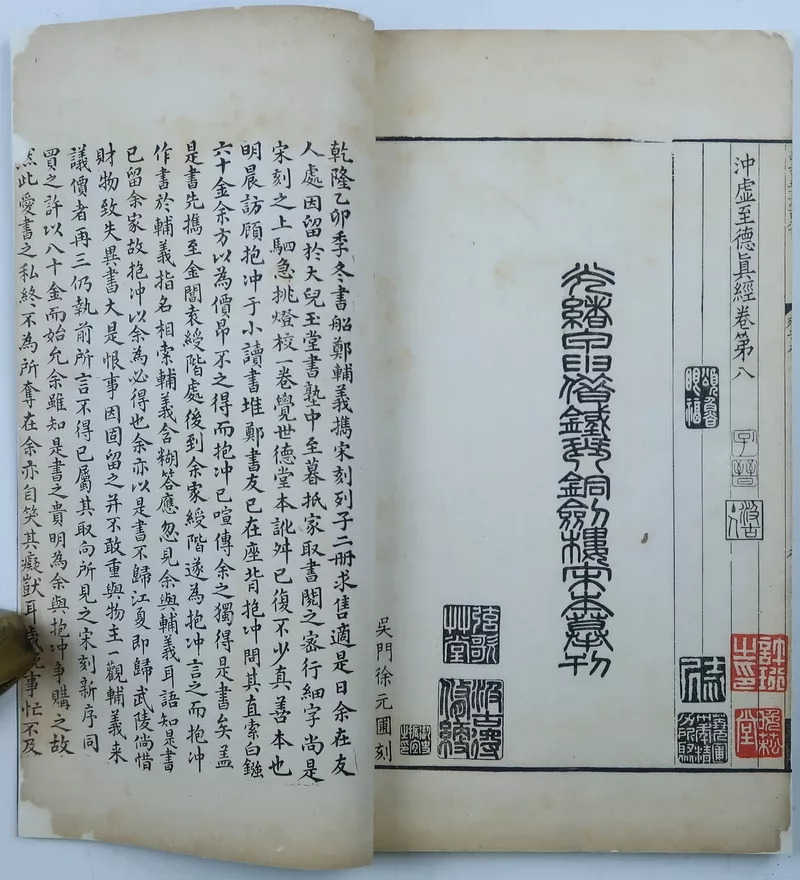 沖虛至德眞經卷第八
頌魯眼福
子晉
弦歌艸堂
汲古得修綆
光緒甲申借鐵琴銅劍樓宋本摹刊
吳門徐元圃刻
乾隆乙卯季冬書船鄭輔義攜宋刻列子二册求售適是日余在友
人處因留於大兒玉堂書塾中至暮抵家取書閱之密行細字尚是
宋刻之上駟急挑燈校一卷覺世德堂本訛舛已復不少真善本也
明晨訪顧抱沖于小讀書堆鄭書友已在座背抱沖問其直索白鏹
六十金余方以為價昂不之得而抱沖已喧傳余之獨得是書矣蓋
是書先攜至金閶袁綬階處後到余家綬階遂為抱沖言之而抱沖
作書於輔義指名相索輔義含糊答應忽見余與輔義耳語知是書
已留余家故抱沖以余為必得也余亦以是書不歸江夏即歸武陵倘惜
財物致失異書大是恨事因固留之并不敢重與物主一觀輔義來
議價者再三仍執前所言不得已屬其取向所見之宋刻新序同
買之許以八十金而始允余雖知是書之貴明為余與抱沖爭購之故
然此愛書之私終不為所奪在余亦自笑其癡獃耳歲晚事忙不及